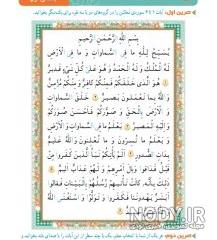 تمرین اول: آیات ۱ تا ۶ سوره‌ی تغابن را در گروه‌های دو یا سه نفره برای یکدیگر بخوانید.
بِسْمِ اللّٰهِ الرَّحْمٰنِ الرَّحیمِ
یُسَبِّحُ لِلّٰهِ ما فِی السَّماواتِ وَ ما فِی الْاَرْضِ
لَهُ الْمُلْكُ وَ لَهُ الْحَمْدُ وَ هُوَ عَلىٰ كُلِّ شَیْءٍ قَدیرٌ
هُوَ الَّذی خَلَقَكُمْ فَمِنْكُمْ كافِرٌ وَ مِنْكُمْ مُؤْمِنٌ
وَ اللّٰهُ بِما تَعْمَلونَ بَصیرٌ خَلَقَ السَّماواتِ
وَ الْاَرْضَ بِالْحَقِّ وَ صَوَّرَكُمْ فَاَحْسَنَ صُوَرَكُمْ
وَ اِلَیْهِ الْمَصیرُ یَعْلَمُ ما فِی السَّماواتِ وَ الْاَرْضِ
وَ یَعْلَمُ ما تُسِرّونَ وَ ما تُعْلِنونَ وَ اللّٰهُ عَلیمٌ
بِذاتِ الصُّدورِ اَلَمْ یَأْتِكُمْ نَبَأُ الَّذینَ كَفَروا مِنْ
قَبْلُ فَذاقوا وَبالَ اَمْرِهِمْ وَ لَهُمْ عَذابٌ اَلیمٌ
ذٰلِكَ بِاَنَّهُ كانَتْ تَأْتیهِمْ رُسُلُهُمْ بِالْبَیِّناتِ فَقالوا
اَبَشَرٌ یَهْدونَنا فَكَفَروا وَ تَوَلَّوْا
NODY.IR
تمرین دوم: هر یک از شما با انتخاب معلم، یک یا چند سطر از این آیات را با صدای بلند بخوانید.